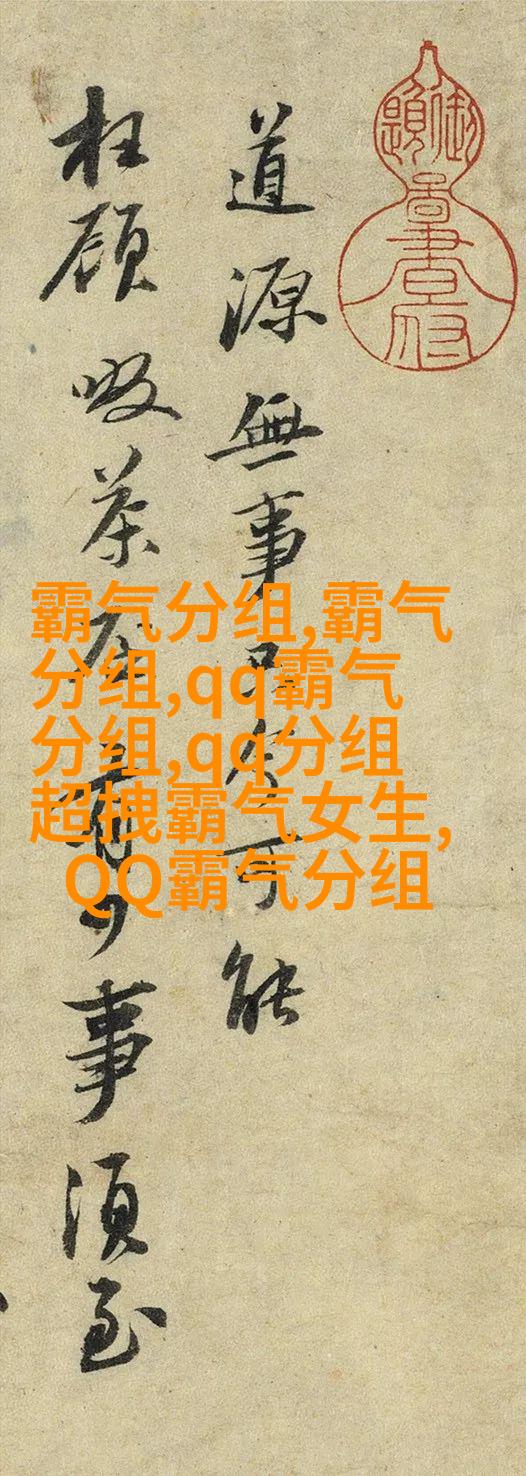 道源無事只今可能
枉顧啜茶否有少事須至
霸气分组,霸气
分组,qq霸气
分组,qq分组
超拽霸气女生,
QQ霸气分组